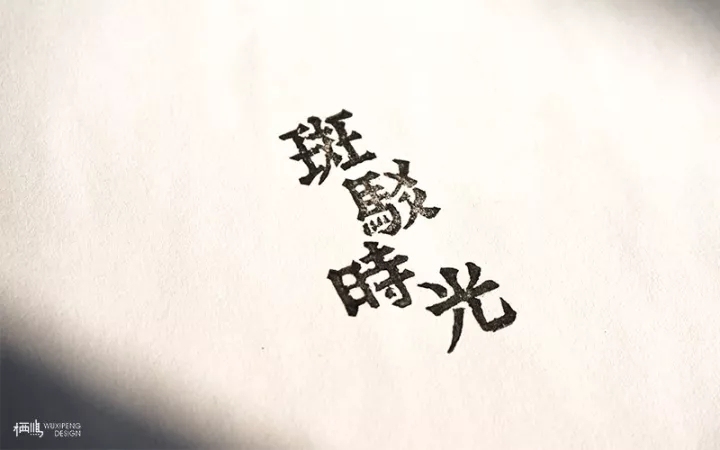 斑駁時光
栖鵬
WUXIPENG
DESIGN